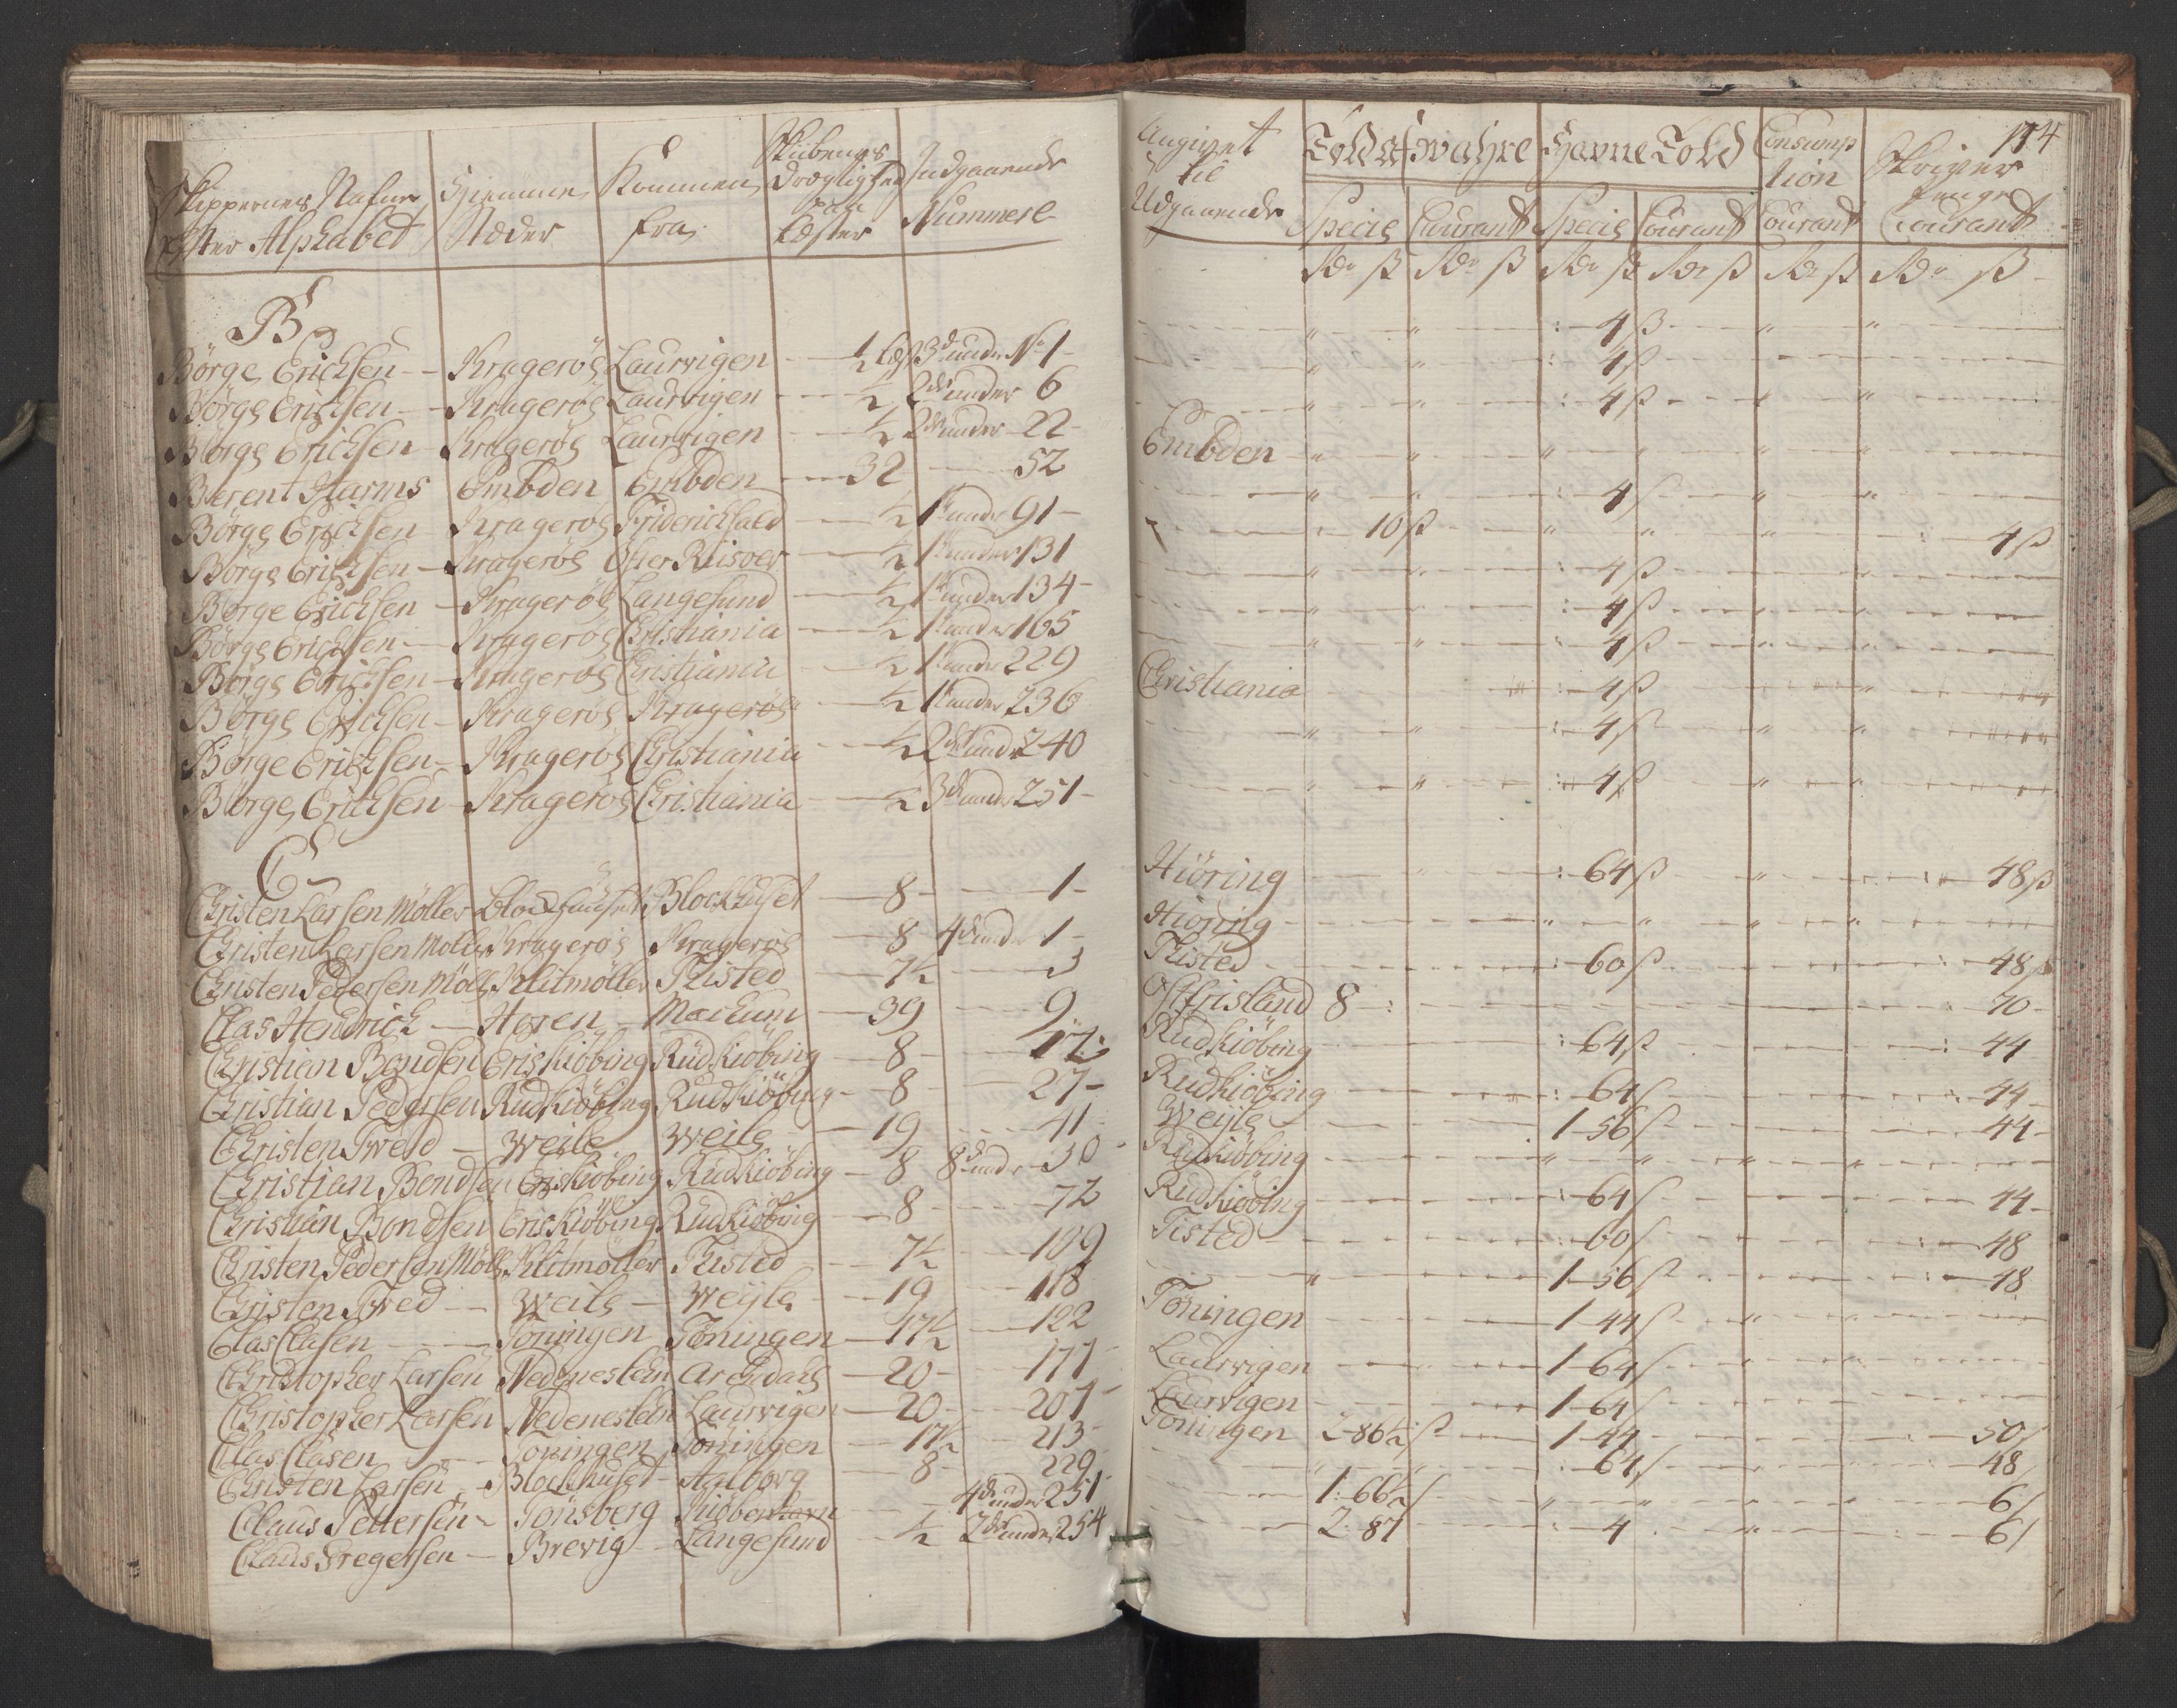 Skippernes Nafne efter Alphabet | Hiemme Stæder | Kommen fra | Skibenes Drægtighed paa Læster | Indgaaende Nummere | Angivet til Udgaaende | Told af Wahre | Hafne Told | Consumption | Skriver Penge | 114
Specis | Courant | Specis | Courant | Courant | Courant
Rdr ß | Rdr ß | Rdr ß | Rdr ß | Rdr ß | Rdr ß
B
Börge Erichsen | Krageröe | Laurvigen | ½ Læst | 3de under No 1 | 4ß
Börge Erichsen | Krageröe | Laurvigen | ½ | 2de under 6 | 4ß
Börge Erichsen | Krageröe | Laurvigen | ½ | 2de under 22 | 4ß
Berent Harms | Embden | Embden | 32 | 52 | Embden
Börge Erichsen | Krageröe | Friderichhald | ½ | 1te under 91 | 4ß
Börge Erichsen | Krageröe | Öster Riisöer | ½ | 1te under 131 | 10ß | 4ß
Börge Erichsen | Krageröe | Langesund | ½ | 1te under 134 | 4ß
Börge Erichsen | Krageröe | Christiania | ½ | 1te under 165 | 4ß
Börge Erichsen | Krageröe | Christiania | ½ | 1te under 229 | 4ß
Börge Erichsen | Krageröe | Krageröe | ½ | 1te under 236 | Christiania | 4ß
Börge Erichsen | Krageröe | Christiania | ½ | 2de under 240 | 4ß
Börge Erichsen | Krageröe | Christiania | ½ | 3de under 251 | 4ß
C
Christen Larsen Möller | Blochhuuset | Blochhuset | 8 | 1 | Hiöring | 64ß | 48ß
Christen Larsen Möller | Krageröe | Krageröe | 8 | 4de under 1 | Hiöring
Christen Pedersen Möller | Klitmöller | Thisted | 7½ | 3 | Thisted | 60ß | 48ß
Clas Hendrich | Haren | Mackum | 39 | 9 | Ostfrisland | 8 | 70
Christian Bendsen | Eriskiöbing | Rudkiöbing | 8 | 17 | Rudkiöbing | 64ß | 44
Christian Pedersen | Rudkiöbing | Rudkiöbing | 8 | 27 | Rudkiöbing | 64ß | 44
Christen Tweed | Weile | Weile | 19 | 41 | Weyle | 1 56ß | 44
Christian Bendsen | Eriskiöbing | Rudkiöbing | 8 | 8de under 30 | Rudkiöbing
Christian Bondsen | Eriskiöbing | Rudkiöbing | 8 | 72 | Rudkiöbing | 64ß | 44
Christen Pedersen Möller | Klitmöller | Thisted | 7½ | 109 | Tisted | 60ß | 48
Christen Tweed | Weile | Weyle | 19 | 118 | 1 56ß | 48
Clas Clasen | Töningen | Töningen | 17½ | 122 | Töningen | 1 44ß
Christopher Larsen | Nedeneslehn | Arendahl | 20 | 177 | Laurvigen | 1 64ß
Christopher Larsen | Nedeneslehn | Laurvigen | 20 | 207 | Laurvigen | 1 64ß
Clas Clasen | Töningen | Töningen | 17½ | 213 | Töningen | 2 86½ß | 1 44 | 50ß
Christen Larsen | Blochhuset | Aalborg | 8 | 229 | 64ß | 48
Claus Pettersen | Tönsberg | Kiöbenhavn | 4de under 251 | 1 66½ß | 6ß
Claus Gregersen | Brevig | Langesund | ½ | 2de under 254 | 2 87 | 4 | 6ß